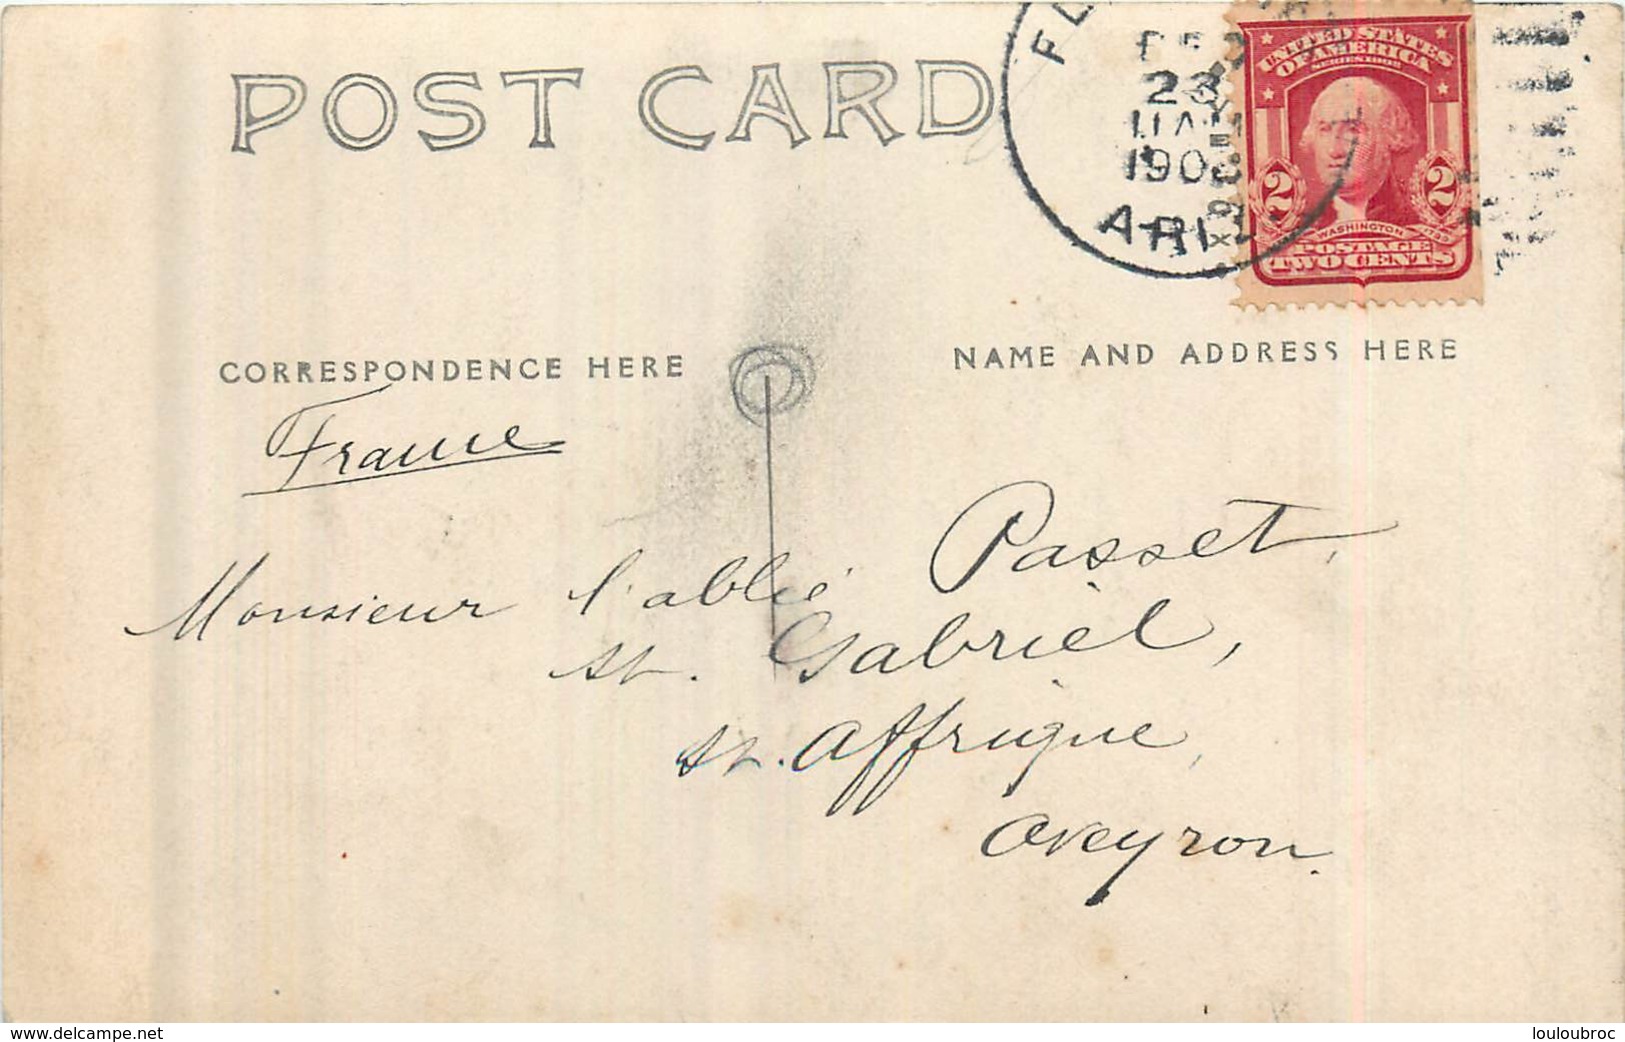 POST CARD
ARIZ.
UNITED STATES
OF AMERICA
SERIES 1902
2 2
WASHINGTON
POSTAGE
TWO CENTS
CORRESPONDENCE HERE
NAME AND ADDRESS HERE
France
Monsieur l'abbé Passet,
St. Gabriel,
St. Affrique,
Aveyron.
www.delcampe.net
louloubroc